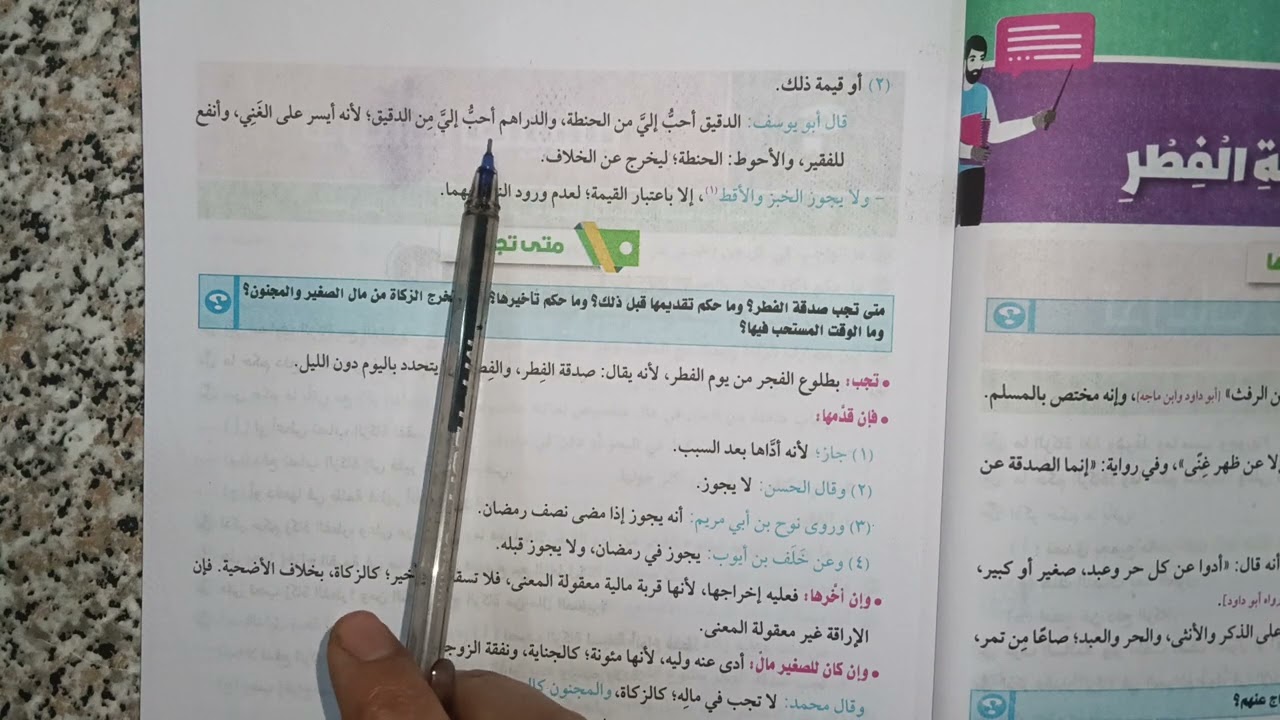 (٢) أو قيمة ذلك.
قال أبو يوسف: الدقيق أحبُّ إليَّ من الحنطة، والدراهم أحبُّ إليَّ مِن الدقيق؛ لأنه أيسر على الغَنِي، وأنفع
للفقير، والأحوط: الحنطة؛ ليخرج عن الخلاف.
- ولا يجوز الخبز والأقط(١)، إلا باعتبار القيمة؛ لعدم ورود
متى
متى تجب صدقة الفطر؟ وما حكم تقديمها قبل ذلك؟ وما حكم تأخيرها؟ الزكاة من مال الصغير والمجنون؟
وما الوقت المستحب فيها؟
• تجب: بطلوع الفجر من يوم الفطر، لأنه يقال: صدقة الفِطر، يتحدد باليوم دون الليل.
• فإن قدَّمها:
(١) جاز؛ لأنه أدَّاها بعد السبب.
(٢) وقال الحسن: لا يجوز.
(٣) وروى نوح بن أبي مريم: أنه يجوز إذا مضى نصف رمضان.
(٤) وعن خَلَف بن أيوب: يجوز في رمضان، ولا يجوز قبله.
• وإن أخَّرها: فعليه إخراجها، لأنها قربة مالية معقولة المعنى، فلا كالزكاة، بخلاف الأضحية. فإن
الإراقة غير معقولة المعنى.
• وإن كان للصغير مال: أدى عنه وليه، لأنها مئونة؛ كالجناية، ونفقة
وقال محمد: لا تجب في ماله؛ كالزكاة، والمجنون
الْفِطْرِ
ن الرفث» [أبو داود وابن ماجه]، وإنه مختص بالمسلم.
لا عن ظهر غِنًى»، وفي رواية: «إنما الصدقة عن
أنه قال: «أدوا عن كل حر وعبد، صغير أو كبير،
رواه أبو داود].
على الذكر والأنثى، والحر والعبد؛ صاعًا مِن تمر،
عنهم؟